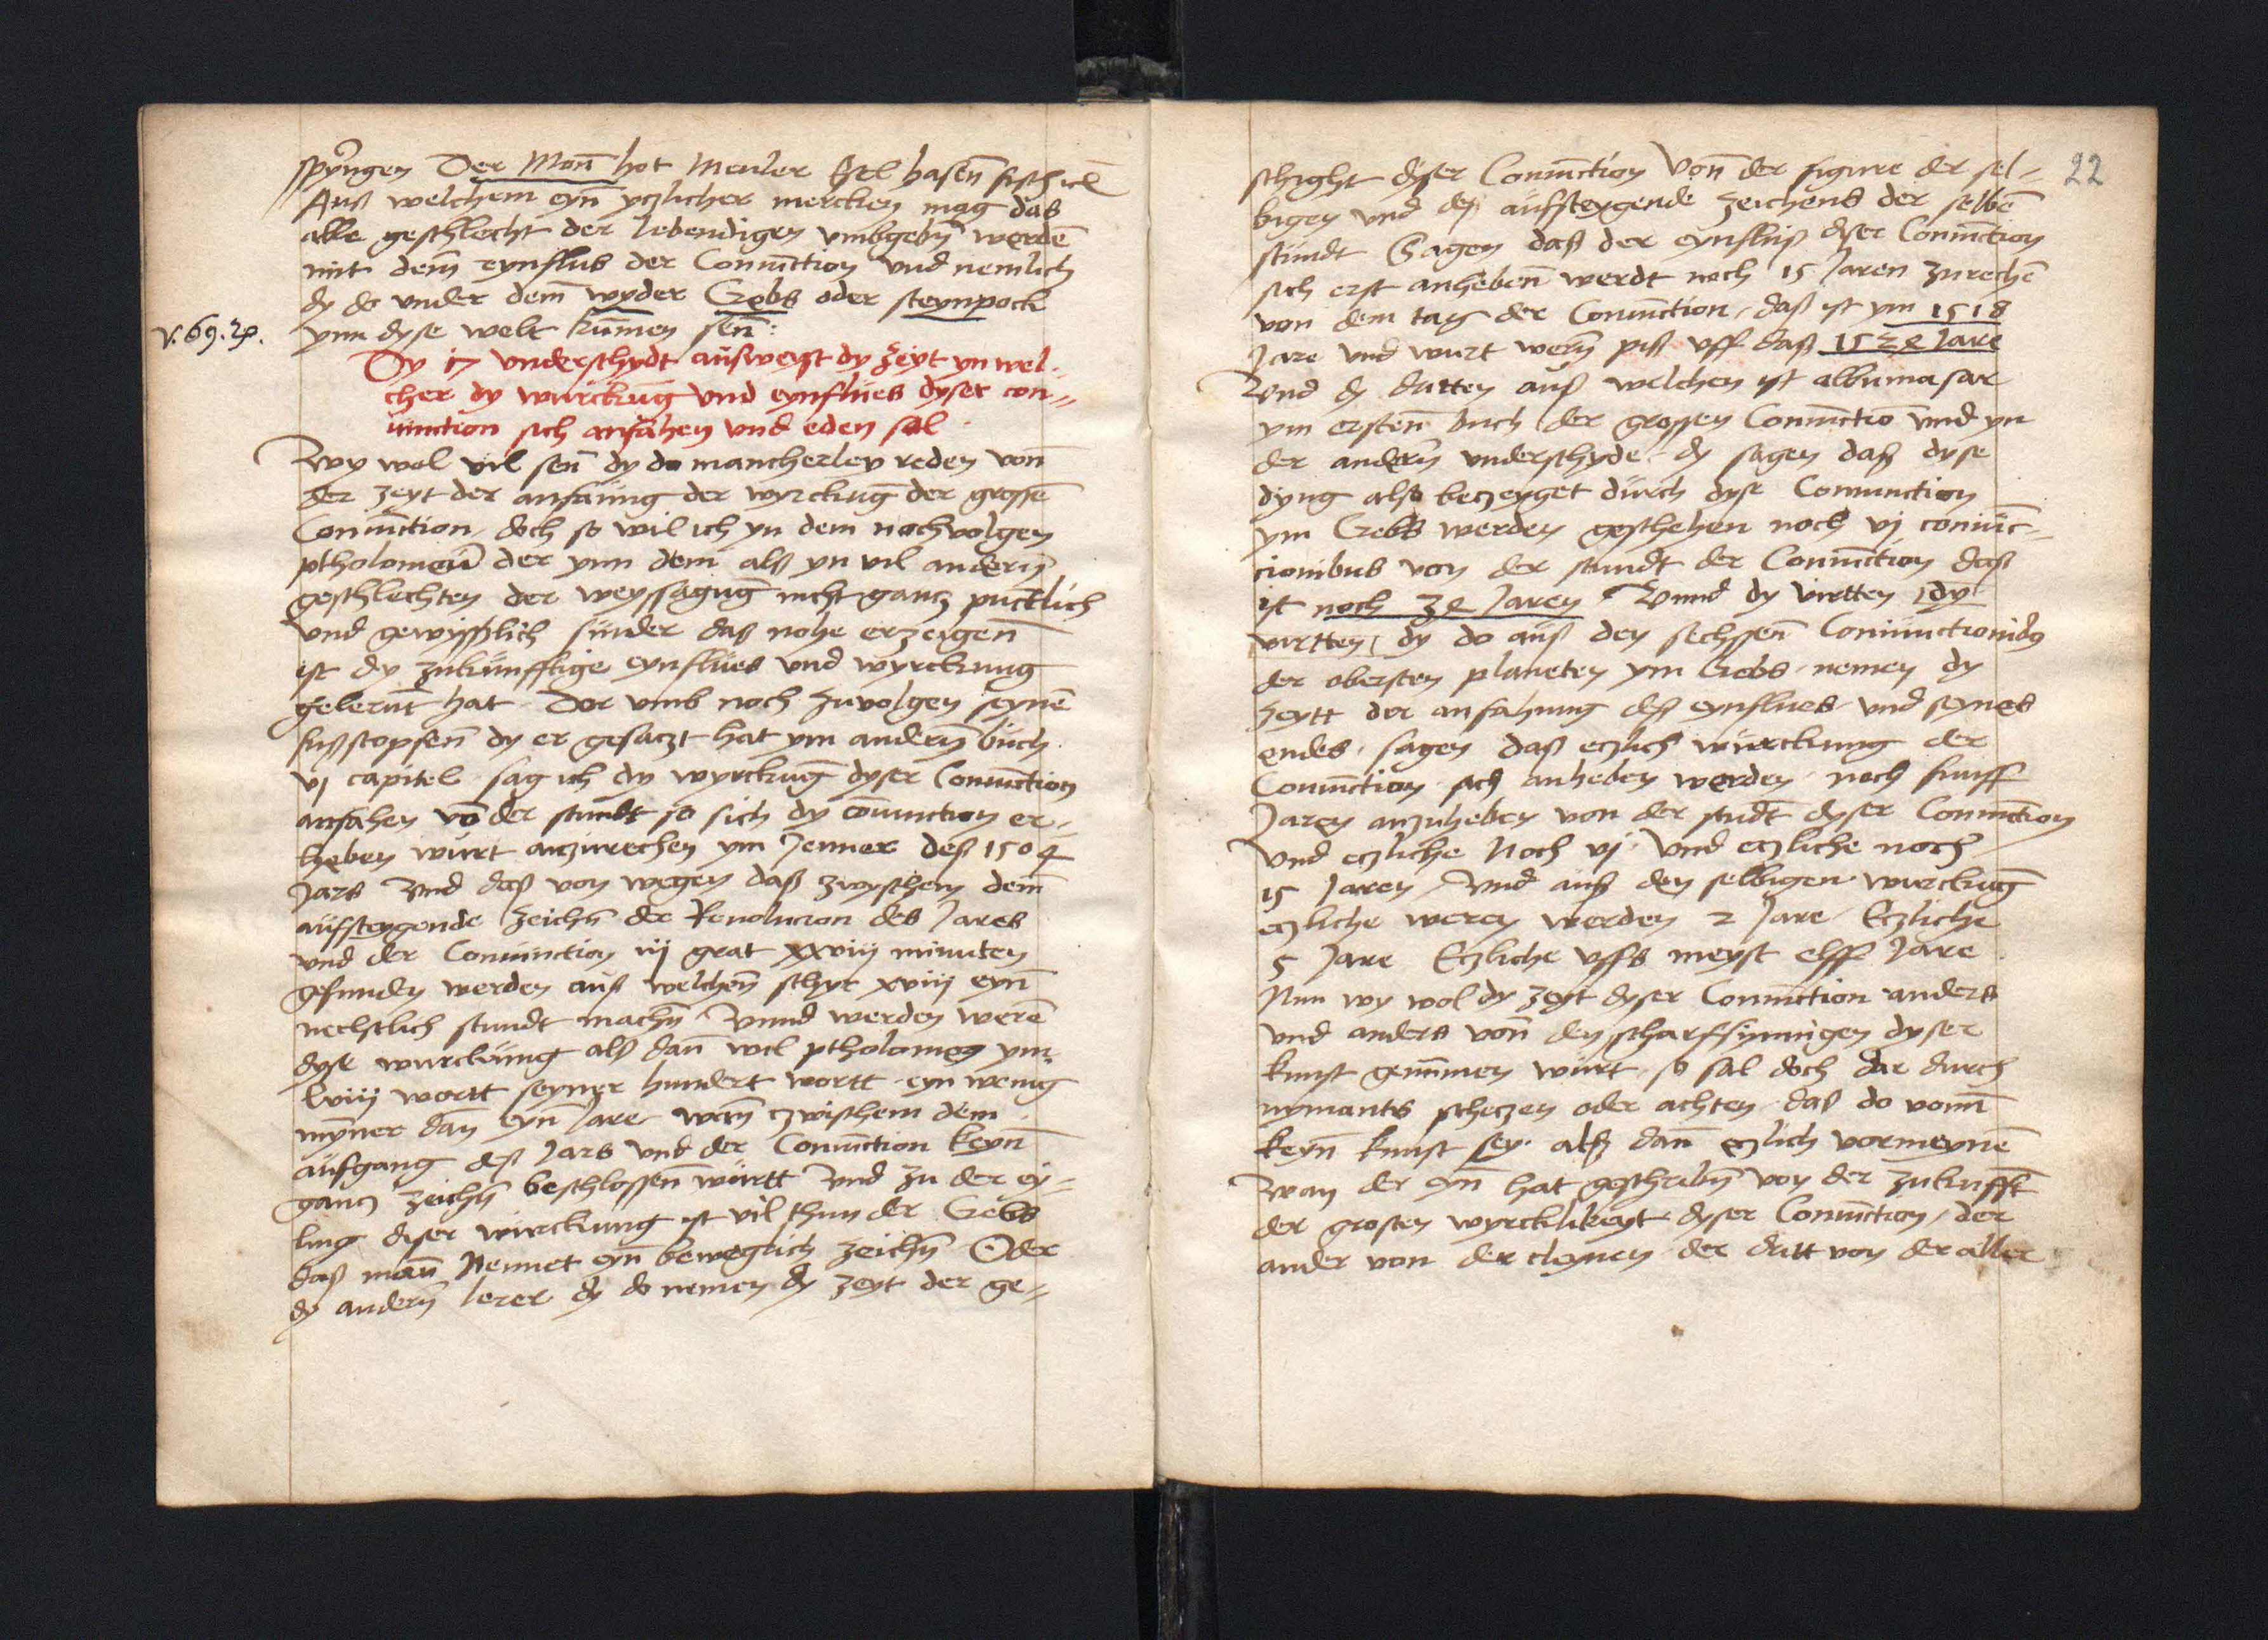 spryngen Der Mon̄ hot Meuler Esel hasen̄ fisch ꝛc̄
Auß welchem eyn̄ yczlicher mercken mag das
alle geschlecht der lebendigen vmbgebn̄ werdē
mit dem̄ eynflus der Coniūction vnd nemlich
dy do vnder dem̄ wyder Crebs oder steynpock
ynn dyse welt kūmen sen̄:
Dy 17 vnderschydt außweyst dy zeyt yn wel-
cher dy wurckūg vnd eynflues dyser con-
iunction sich anfahen vnd eden sol
Wy wol vil sen̄ dy do mancherley reden von̄
der zeyt der anfaung der wyrckūg der grossē
Coniūction, doch so wil ich yn dem nochvolgen
ptholomeū der ynn dem alß yn vil andern̄
geschlechten der weyssagūg nicht gancz pūcklich
vnd gewyßlich sunder daß nohe erzeigen̄
ist dy zukunfftige eynflues vnd wyrckung
gelernt hat. Dor vmb noch zuvolgen seynē
fußstopfen̄ dy er gesaczt hat ym andern̄ buch
vj capitel sag ich dy wyrckūg dyser Coniūction
anfahen vō der stundt so sich dy cōniunction er-
heben wurt anzurechen ym Jenner deß 1504
Jars Vnd daß von wegen daß zwyschem dem̄
aufsteygende zeichn̄ der Reuolucion des Jares
vnd der Coniunction iij grat xxviij minuten
gefunden werden auß welchen̄ schyr xviij eyn̄
nechstlich stundt machn̄ Vnnd werden werē
dyse wurckung alß dan̄ wil ptholomeꝰ ym
lviij wortt seyner hundert wortt eyn wenig
myner dan̄ eyn Jare wan̄ zwischem dem
aufgang deß Jars vnd der Coniūction keyn̄
gancz zeichn̄ beschlossen̄ wurtt Vnd zu der ey-
ling dyser wirckung ist vil thun der Crebs
daß man̄ Nennet eyn̄ beweglich zeichn̄ Oder
dy andern̄ lerer dy do nemen dy zeyt der ge-
22
schicht dyser Coniūction von̄ der figure der sel-
bigen vnd deß aufsteygende zeichens der selbē
stundt Sagen daß der eynfluß dyser Coniūction
sich erst anheben̄ werdt noch 15 Jaren zurechē
von dem tag der Coniūction, daß ist ym 1518
Jare vnd wurt wern̄ piß vff daß 1524 Jare
Vnd dy dritten auß welchen ist albumasar
ym ersten̄ buch der grossen Coniūctiō vnd yn
der andern̄ vnderschyde. dy sagen daß dyse
dyng also bezeyget durch dyse Coniunction
ym Crebs werden geschehen noch vj coniūc-
cionibus von der stundt der Coniūction daß
ist noch 24 Jaren Vnnd dy virtten dy
virtten, dy do auß den sechssen̄ Coniunctionibꝰ
der obersten planeten ym Crebs nemen dy
zeytt der anfahung deß eynflues vnd seynes
endes. sagen daß eczlich wurckung der
Coniūction sich anheben werden noch funff
Jaren anzuheben von der stūdt dyser Coniūction
Vnd eczliche Noch vj vnd eczliche noch
15 Jaren Vnd auß den selbigen wurckūg
eczliche weren werden 2 Jare Eczliche
5 Jare Eczliche vffs meyst elff Jare
Nun wy wol dy zeyt dyser Coniūction anders
vnd anders von̄ den scharfsinnigen dyser
kunst genūmen wurt, so sal doch dar durch
nymants scheczen oder achten daß do von̄
keyn̄ kunst sey. alß dan̄ eczlich vormeynē
Wan der eyn̄ hat geschribn̄ von der zukunfft
der grosten wyrcklikeyt dyser Coniūction, der
ander von der cleynen der dritt von der aller